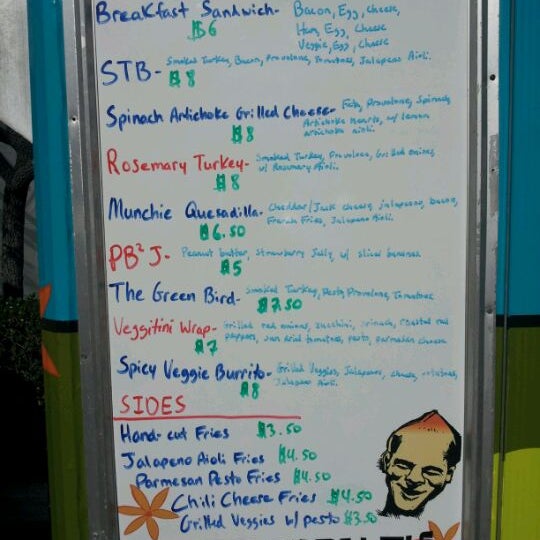 Breakfast Sandwich- Bacon, Egg, Cheese,
$6 Ham, Egg, Cheese
Veggie, Egg, Cheese
STB- Smoked Turkey, Bacon, Provolone, Tomatoes, Jalapeno Aioli.
$8
Spinach Artichoke Grilled Cheese- Feta, Provolone, Spinach,
Artichoke Hearts, w/ lemon
$8 artichoke aioli.
Rosemary Turkey- Smoked Turkey, Provolone, Grilled onions
$8 w/ Rosemary Aioli.
Munchie Quesadilla- Cheddar/Jack cheese, jalapenos, bacon,
$6.50 French Fries, Jalapeno Aioli.
PB²J- Peanut butter, Strawberry Jelly w/ sliced bananas
$5
The Green Bird- Smoked Turkey, Pesto, Provolone, Tomatoes
$7.50
Veggitini Wrap- Grilled red onions, zucchini, spinach, roasted red
$7 peppers, sun dried tomatoes, pesto, parmesan cheese
Spicy Veggie Burrito- Grilled Veggies, Jalapenos, cheese, potatoes,
$8 Jalapeno Aioli.
SIDES
Hand-cut Fries $3.50
Jalapeno Aioli Fries $4.50
Parmesan Pesto Fries $4.50
Chili Cheese Fries $4.50
Grilled Veggies w/ pesto $3.50